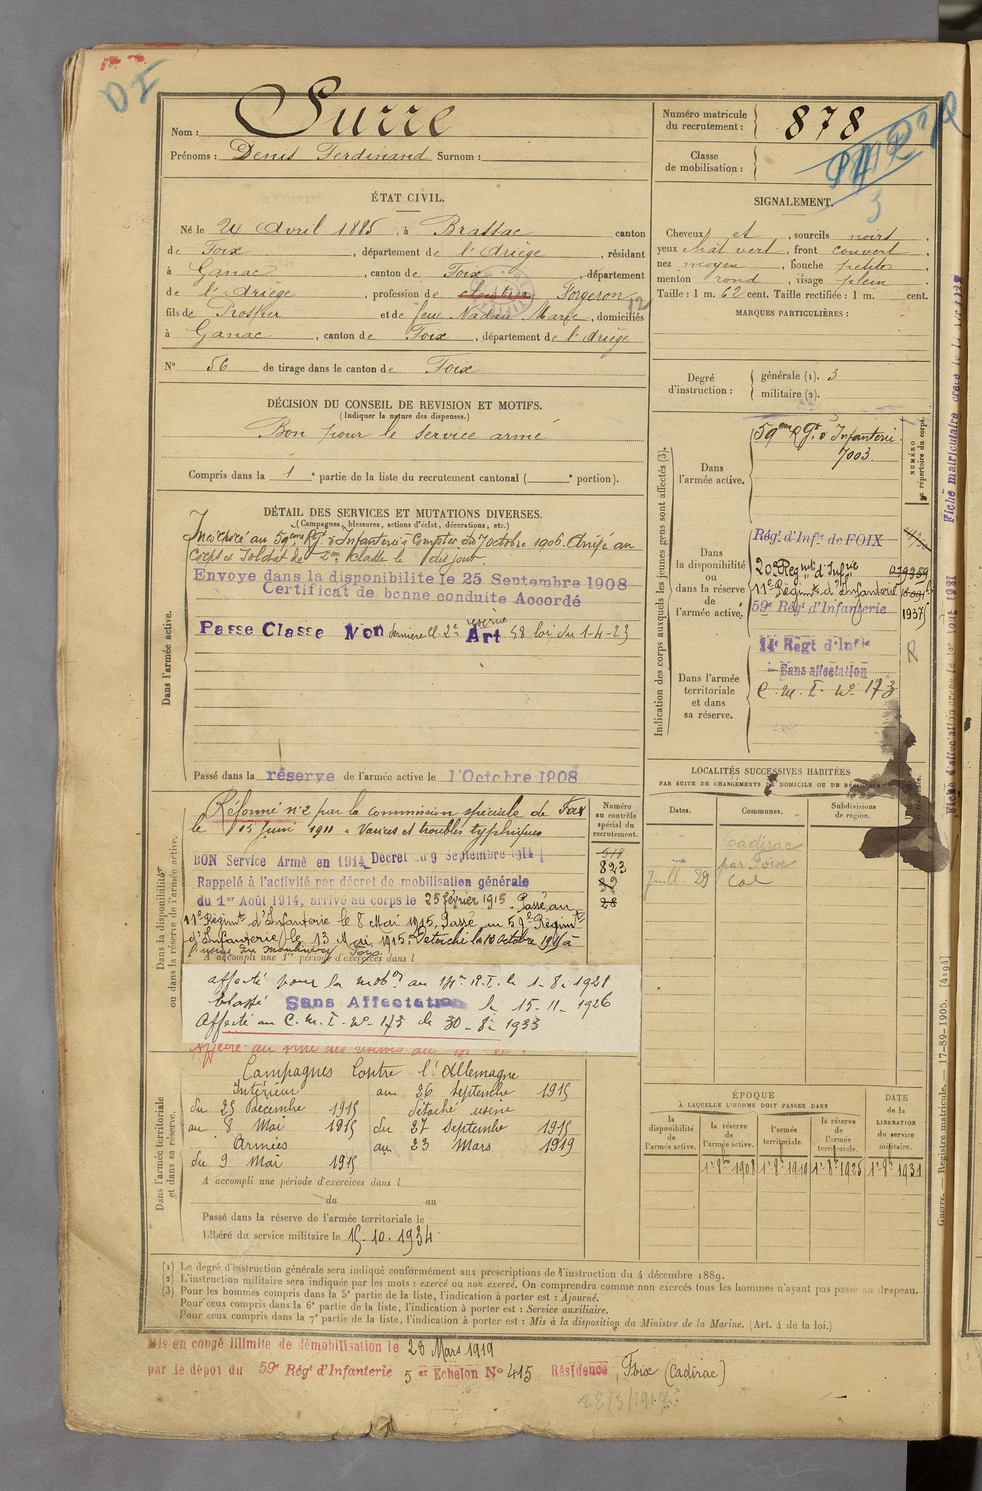 Nom : Surre
Prénoms : Denis Ferdinand Surnom :
Numéro matricule du recrutement : 878
Classe de mobilisation :
ÉTAT CIVIL.
Né le 24 Avril 1885, à Brassac canton
de Foix, département de l'Ariège, résidant
à Ganac, canton de Foix, département
de l'Ariège, profession de Forgeron
fils de Prosper et de feue Nadau Marie, domiciliés
à Ganac, canton de Foix, département de l'Ariège
N° 56 de tirage dans le canton de Foix
SIGNALEMENT.
Cheveux et, sourcils noirs,
yeux chât vert, front couvert
nez moyen, bouche petite
menton rond, visage plein
Taille : 1 m. 62 cent. Taille rectifiée : 1 m. cent.
MARQUES PARTICULIÈRES :
Degré d'instruction : générale (1). 3
militaire (2).
DÉCISION DU CONSEIL DE REVISION ET MOTIFS.
(Indiquer la nature des dispenses.)
Bon pour le service armé
Compris dans la 1e partie de la liste du recrutement cantonal ( e portion).
DÉTAIL DES SERVICES ET MUTATIONS DIVERSES.
(Campagnes, blessures, actions d'éclat, décorations, etc.)
Incorporé au 59ème Rgt d'Infanterie à Compter du 7 octobre 1906. Arrivé au
corps et Soldat de 2me classe le dit jour.
Envoyé dans la disponibilité le 25 Septembre 1908
Certificat de bonne conduite Accordé
Passé Classe Mon dernière Cl. 2e réserve Art 58 loi du 1-4-23
Dans l'armée active.
Passé dans la réserve de l'armée active le 1 Octobre 1908
Indication des corps auxquels les jeunes gens sont affectés (3).
Dans l'armée active.
59me Rgt d'Infanterie
7003
NUMÉRO au répertoire du corps.
Dans la disponibilité ou dans la réserve de l'armée active.
Régt d'Infie de FOIX
20e Régmt d'Infrie
11e Régimt d'Infanterie
59e Régt d'Infanterie
Dans l'armée territoriale et dans sa réserve.
14e Regt d'Infie
Sans affectation
C. M. I. N° 173
LOCALITÉS SUCCESSIVES HABITÉES
PAR SUITE DE CHANGEMENTS DE DOMICILE OU DE RÉSIDENCE
Dates. Communes. Subdivisions de région.
Cadirac
par Foix
Juill. 29
Réformé n°2 par la commission spéciale de Foix
le 15 Juin 1911 "Varices et troubles typhiques
Numéro au contrôle spécial du recrutement.
823
BON Service Armé en 1914 Décret du 9 Septembre 1914
Rappelé à l'activité par décret de mobilisation générale
du 1er Août 1914, arrivé au corps le 25 février 1915. Passé au
11e Régimt d'Infanterie le 8 Mai 1915. Passé au 59e Régimt
d'Infanterie le 13 Mai 1915. Détaché le 10 octobre 1915 à
A accompli une 1re période d'exercices dans l
Dans la disponibilité ou dans la réserve de l'armée active.
affecté pour la mobon au R.I. le 1-8-1921
Classé Sans Affectation le 15-11-1926
Affecté au C. M. I. N° 173 le 30-8-1933
Campagnes Contre l'Allemagne
Intérieur
du 25 Décembre 1915
au 8 Mai 1915
Armées
du 9 Mai 1915
au 26 septembre 1915
détaché usine
du 27 septembre 1915
au 23 Mars 1919
A accompli une période d'exercices dans l
du au
Passé dans la réserve de l'armée territoriale le
Libéré du service militaire le 15-10-1934
Dans l'armée territoriale et dans sa réserve.
ÉPOQUE
À LAQUELLE L'HOMME DOIT PASSER DANS
la disponibilité de l'armée active.
la réserve de l'armée active.
l'armée territoriale.
la réserve de l'armée territoriale.
DATE de la LIBÉRATION du service militaire.
1r 8bre 1908 1r 8bre 1919 1r 8bre 1925 1r 8bre 1931
(1) Le degré d'instruction générale sera indiqué conformément aux prescriptions de l'instruction du 4 décembre 1889.
(2) L'instruction militaire sera indiquée par les mots : exercé ou non exercé. On comprendra comme non exercés tous les hommes n'ayant pas passé au drapeau.
(3) Pour les hommes compris dans la 5e partie de la liste, l'indication à porter est : Ajourné.
Pour ceux compris dans la 6e partie de la liste, l'indication à porter est : Service auxiliaire.
Pour ceux compris dans la 7e partie de la liste, l'indication à porter est : Mis à la disposition du Ministre de la Marine. (Art. 4 de la loi.)
Mis en congé illimité de démobilisation le 23 Mars 1919
par le dépôt du 59e Régt d'Infanterie 5 er Echelon N° 415 Résidence Foix (Cadirac)
Guerre. — Registre matricule. — 17-89-1905. [4194]